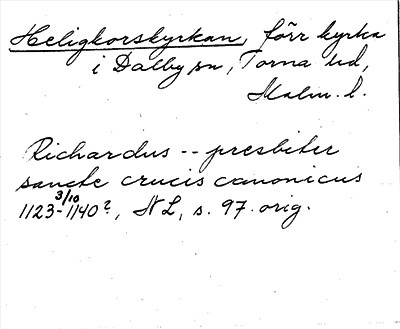 Heligkorskyrkan, förr kyrka
i Dalby sn, Torna hd,
Malm. l.
Richardus -- presbiter
sancte crucis canonicus
3/10
1123-1140?, NL, s. 97. orig.